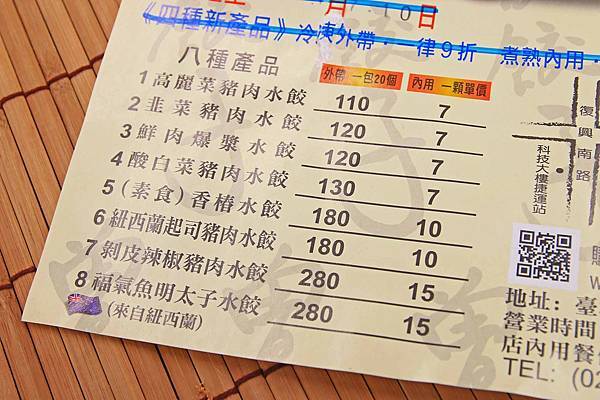 月 10日
《四種新產品》冷凍外帶． 律9折 煮熟內用．
八種產品 外帶 一包20個 內用 一顆單價
1高麗菜豬肉水餃 110 7
2韭菜豬肉水餃 120 7
3鮮肉爆漿水餃 120 7
4酸白菜豬肉水餃 130 7
5(素食)香椿水餃 180 10
6紐西蘭起司豬肉水餃 180 10
7剝皮辣椒豬肉水餃 280 15
8福氣魚明太子水餃 280 15
(來自紐西蘭)
復興南路
科技大樓捷運站
地址: 臺
營業時間
店內用餐
TEL: (02